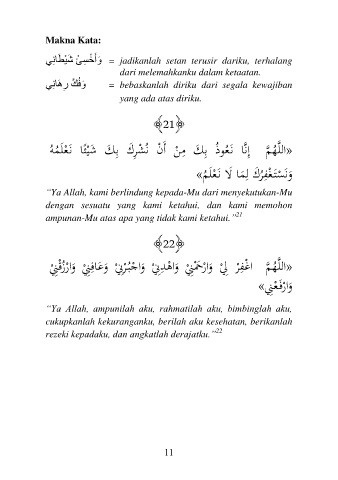 Makna Kata:
وَأَخْسِئْ شَيْطَانِيْ = jadikanlah setan terusir dariku, terhalang
dari melemahkanku dalam ketaatan.
وَفُكَّ رِهَانِيْ = bebaskanlah diriku dari segala kewajiban
yang ada atas diriku.
﴾21﴿
«اللَّهُمَّ إِنَّا نَعُوذُ بِكَ مِنْ أَنْ نُشْرِكَ بِكَ شَيْئًا نَعْلَمُهُ
وَنَسْتَغْفِرُكَ لِمَا لَا نَعْلَمُ»
“Ya Allah, kami berlindung kepada-Mu dari menyekutukan-Mu
dengan sesuatu yang kami ketahui, dan kami memohon
ampunan-Mu atas apa yang tidak kami ketahui.”21
﴾22﴿
«اللَّهُمَّ اغْفِرْ لِيْ وَارْحَمْنِيْ وَاهْدِنِيْ وَاجْبُرْنِيْ وَعَافِنِيْ وَارْزُقْنِيْ
وَارْفَعْنِي»
“Ya Allah, ampunilah aku, rahmatilah aku, bimbinglah aku,
cukupkanlah kekuranganku, berilah aku kesehatan, berikanlah
rezeki kepadaku, dan angkatlah derajatku.”22
11